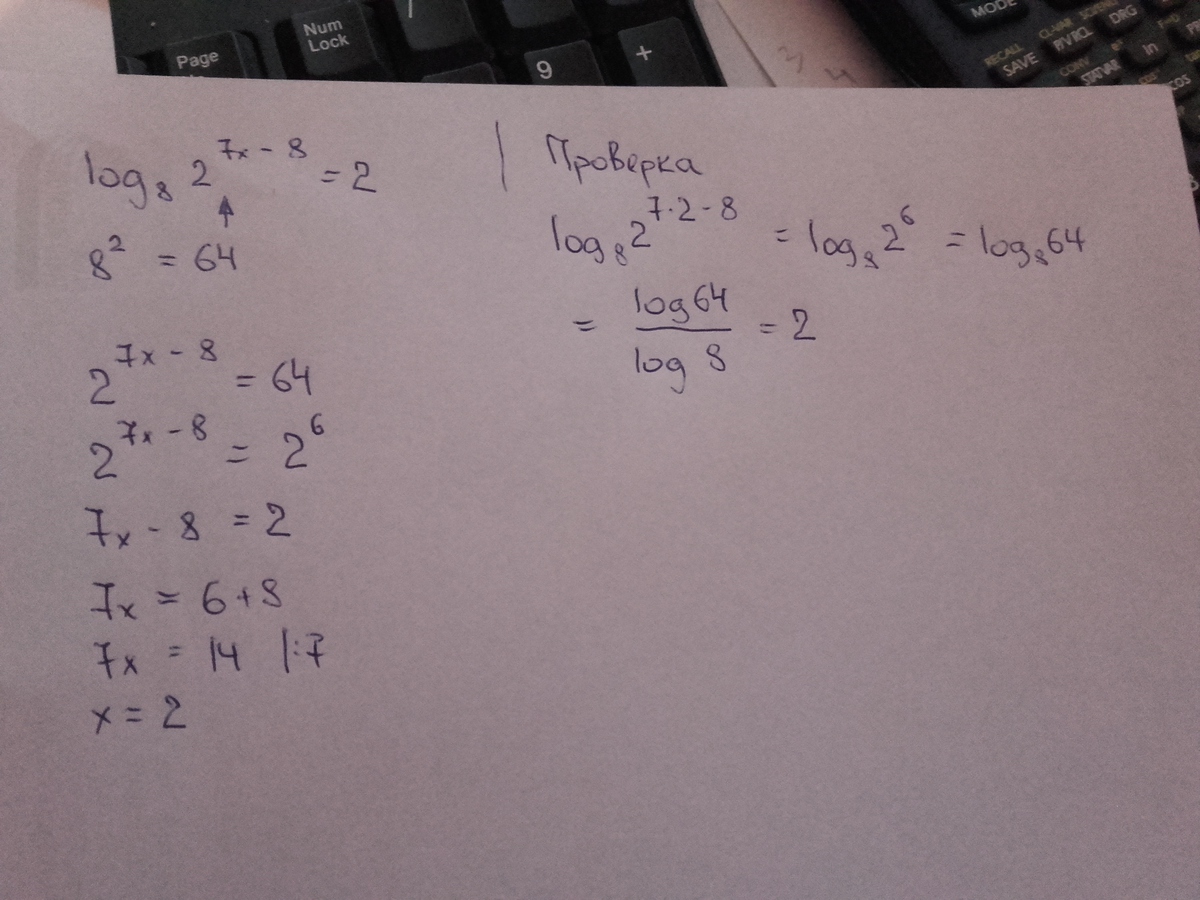 Page
Num
Lock
9
+
3
4
MODE
RECALL
SAVE
RCL
DRG
STATVAR
CONV
ln
log₈ 2^(7x - 8) = 2
↑
8² = 64
2^(7x - 8) = 64
2^(7x - 8) = 2⁶
7x - 8 = 2
7x = 6 + 8
7x = 14 |:7
x = 2
| Проверка
log₈ 2^(7·2 - 8) = log₈ 2⁶ = log₈ 64
= log 64 / log 8 = 2